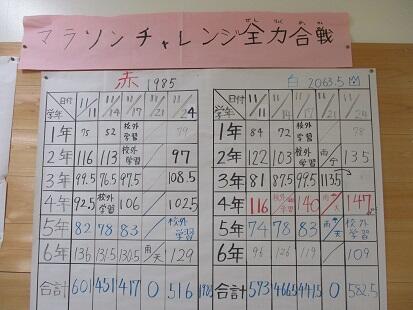 マラソンチャレンジ全力合戦
ぜんりょくがっせん
赤 1985
日付 学年 11/11 11/14 11/17 11/21 11/24
1年 75 52 校外学習 79
2年 116 113 校外学習 97
3年 99.5 76.5 97.5 108.5
4年 92.5 校外学習 106 102.5
5年 82 78 83 校外学習
6年 136 131.5 130.5 雨天 129
合計 601 451 417 0 516 1985
白 2063.5
日付 学年 11/11 11/14 11/17 11/21 11/24
1年 84 72 校外学習 78
2年 122 103 校外学習 135
3年 81 87.5 99.5 113.5
4年 116 校外学習 140 147
5年 74 78 83 校外学習
6年 96 126 119 109
合計 573 466.5 441.5 0 582.5